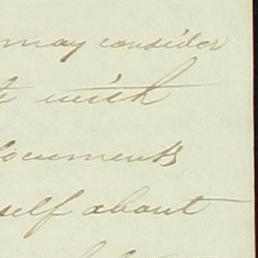 may consider
wish
documents
self about